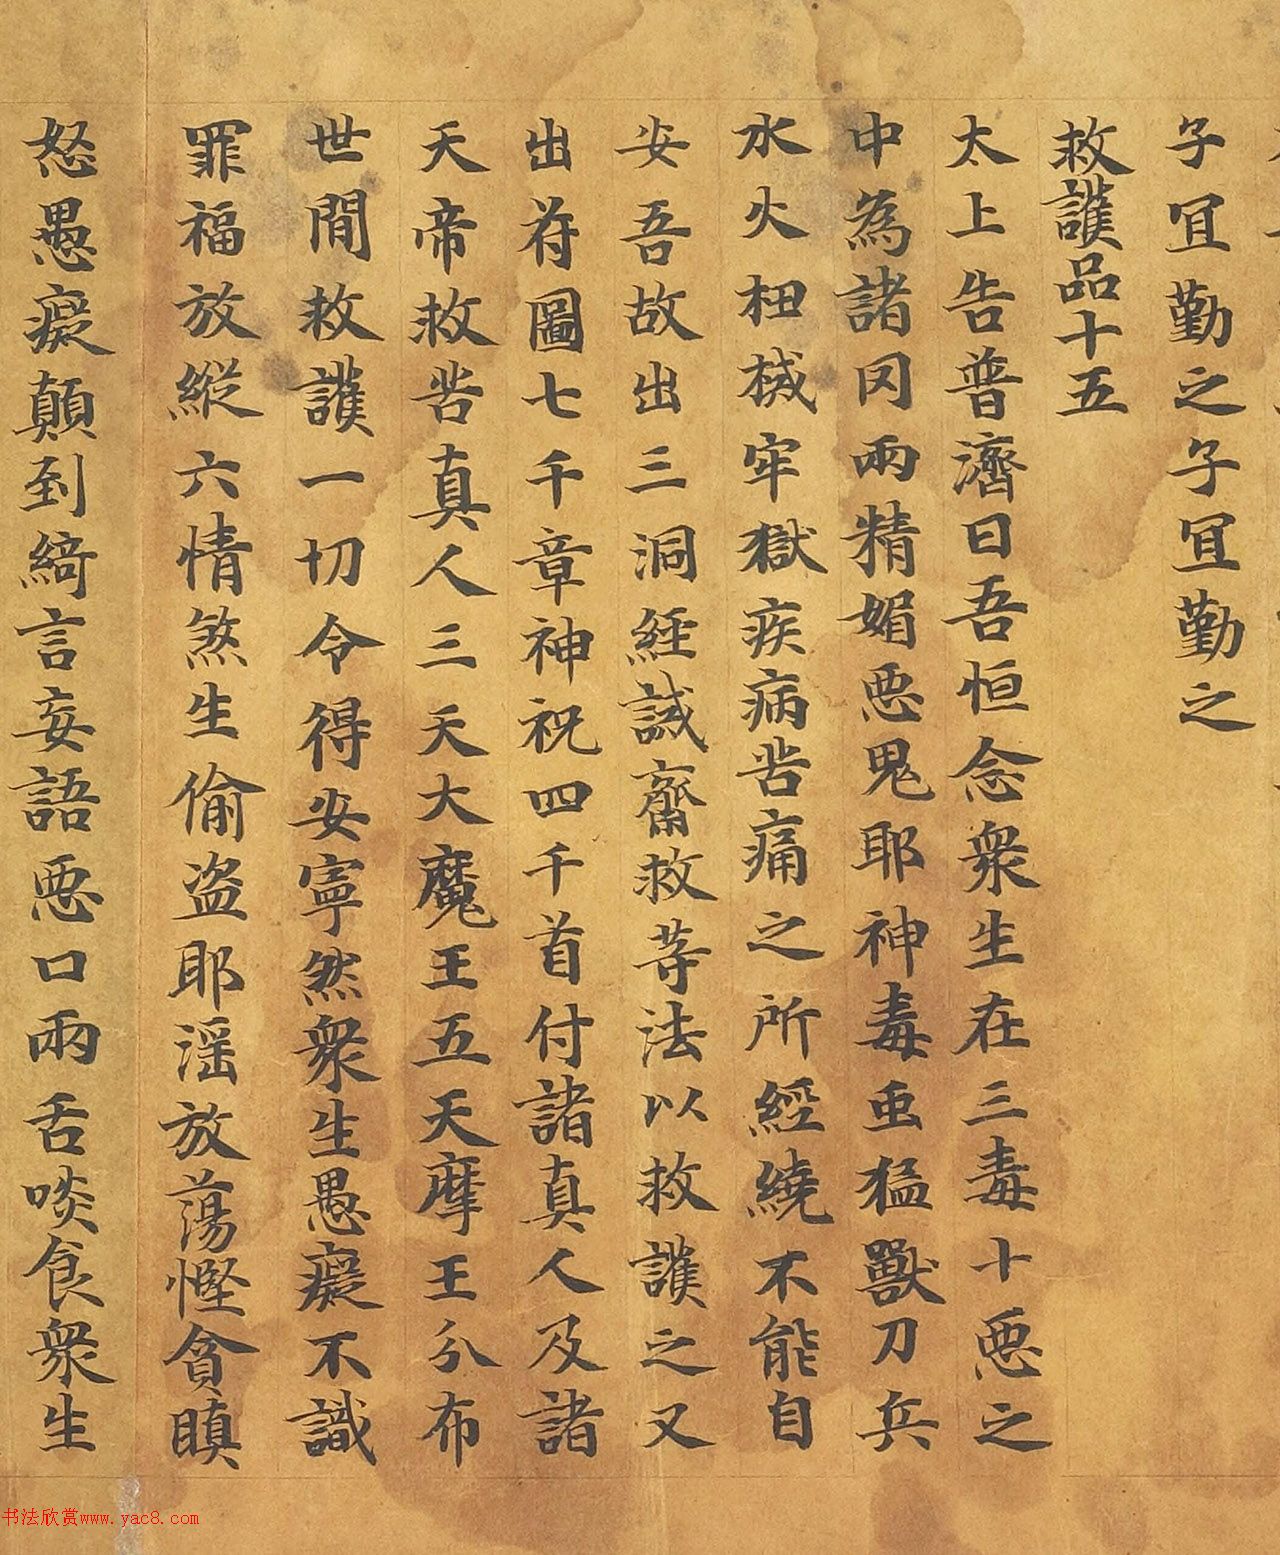 子冝勤之子冝勤之
救護品十五
太上告普濟曰吾恒念衆生在三毒十惡之
中為諸罔兩精媚惡鬼耶神毒虫猛獸刀兵
水火杻械牢獄疾病苦痛之所經繞不能自
安吾故出三洞經誡齋救等法以救護之又
出符圖七千章神祝四千首付諸真人及諸
天帝救苦真人三天大魔王五天摩王分布
世間救護一切令得安寧然衆生愚癡不識
罪福放縱六情煞生偷盗耶滛放蕩慳貪瞋
怒愚癡顛到綺言妄語惡口兩舌啖食衆生
书法欣赏www.yac8.com